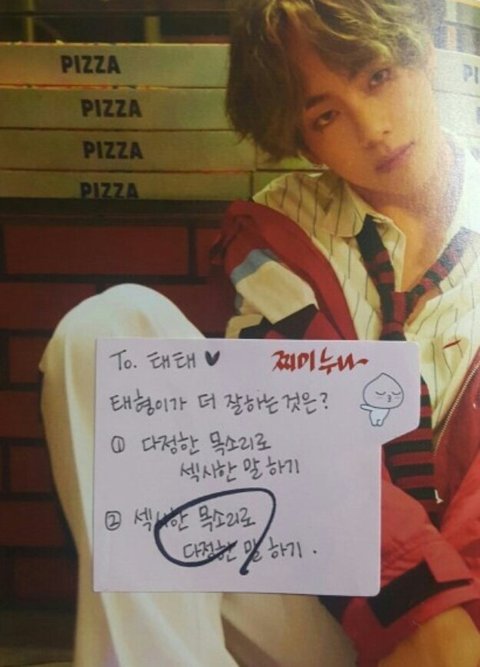 PIZZA
PIZZA
PIZZA
PIZZA
To. 태태 ♥
찌미누나~
태형이가 더 잘하는 것은?
① 다정한 목소리로
섹시한 말 하기
② 섹시한 목소리로
다정한 말 하기.